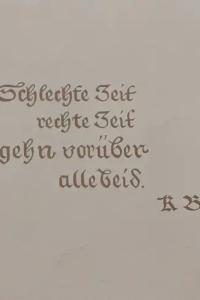 Schlechte Zeit
rechte Zeit
gehn vorüber
alle beid.
K B